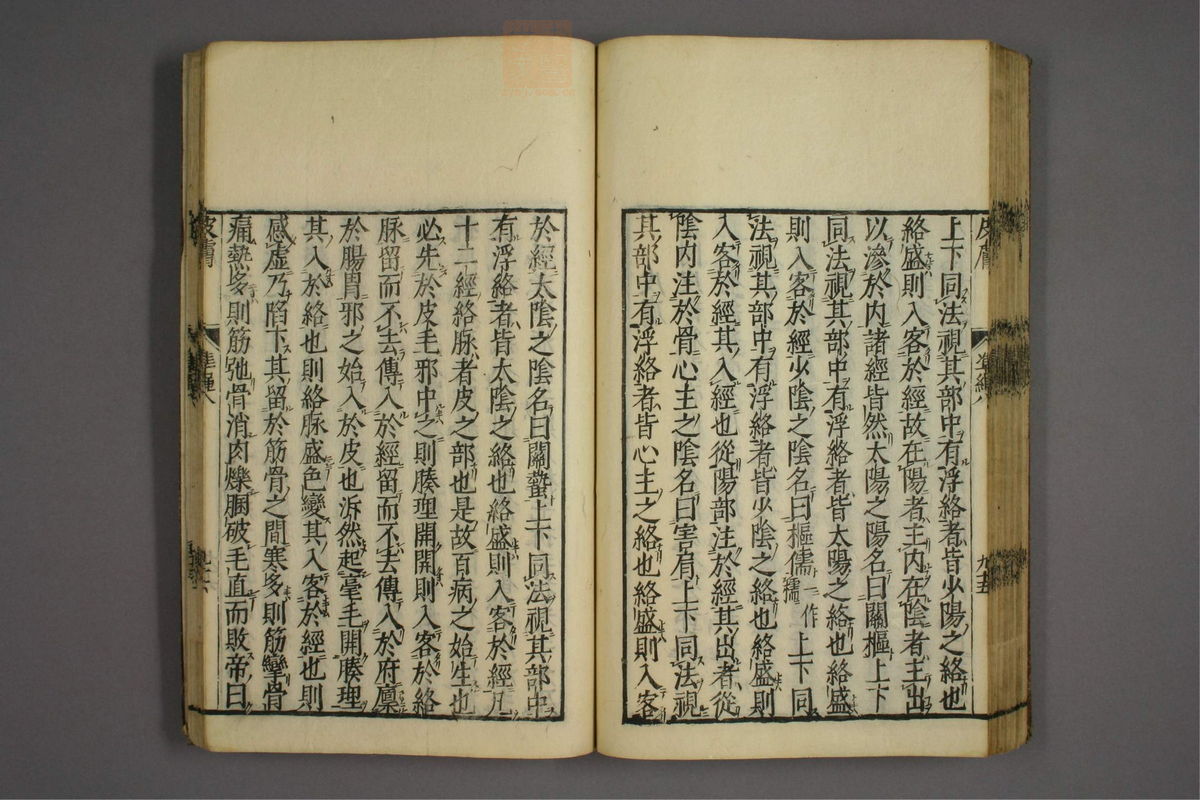 上下同法視其部中有浮絡者皆少陽之絡也
絡盛則入客於經故在陽者主内在陰者主出
以滲於内諸經皆然太陽之陽名曰關樞上下
同法視其部中有浮絡者皆太陽之絡也絡盛
則入客於經少陰之陰名曰樞儒一作檽上下同
法視其部中有浮絡者皆少陰之絡也絡盛則
入客於經其入經也從陽部注於經其出者從
陰内注於骨心主之陰名曰害肩上下同法視
其部中有浮絡者皆心主之絡也絡盛則入客
於經太陰之陰名曰關蟄上下同法視其部中
有浮絡者皆太陰之絡也絡盛則入客於經凡
十二經絡脉者皮之部也是故百病之始生也
必先於皮毛邪中之則腠理開開則入客於絡
脉留而不去傳入於經留而不去傳入於府廪
於腸胃邪之始入於皮也泝然起毫毛開腠理
其入於絡也則絡脉盛色變其入客於經也則
感虚乃陷下其留於筋骨之間寒多則筋攣骨
痛熱多則筋弛骨消肉爍䐃破毛直而敗帝曰
皮膚
九十五